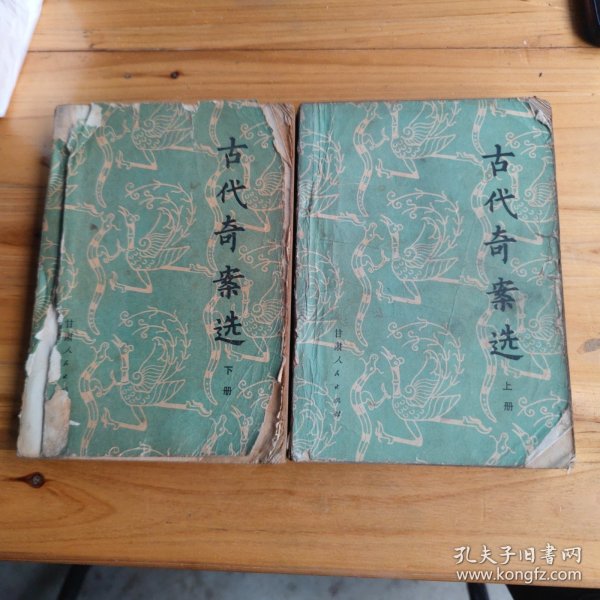 古代奇案选
下册
甘肃人民
古代奇案选
上册
甘肃人民出版社
孔夫子旧书网
www.kongfz.com